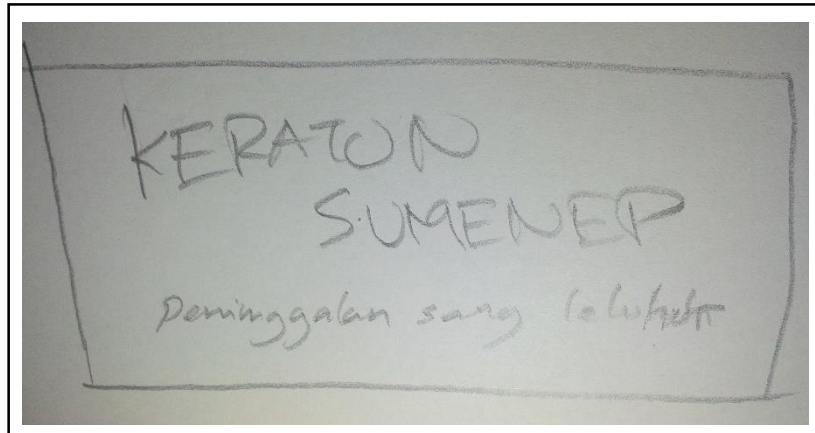 KERATON
SUMENEP
peninggalan sang leluhur